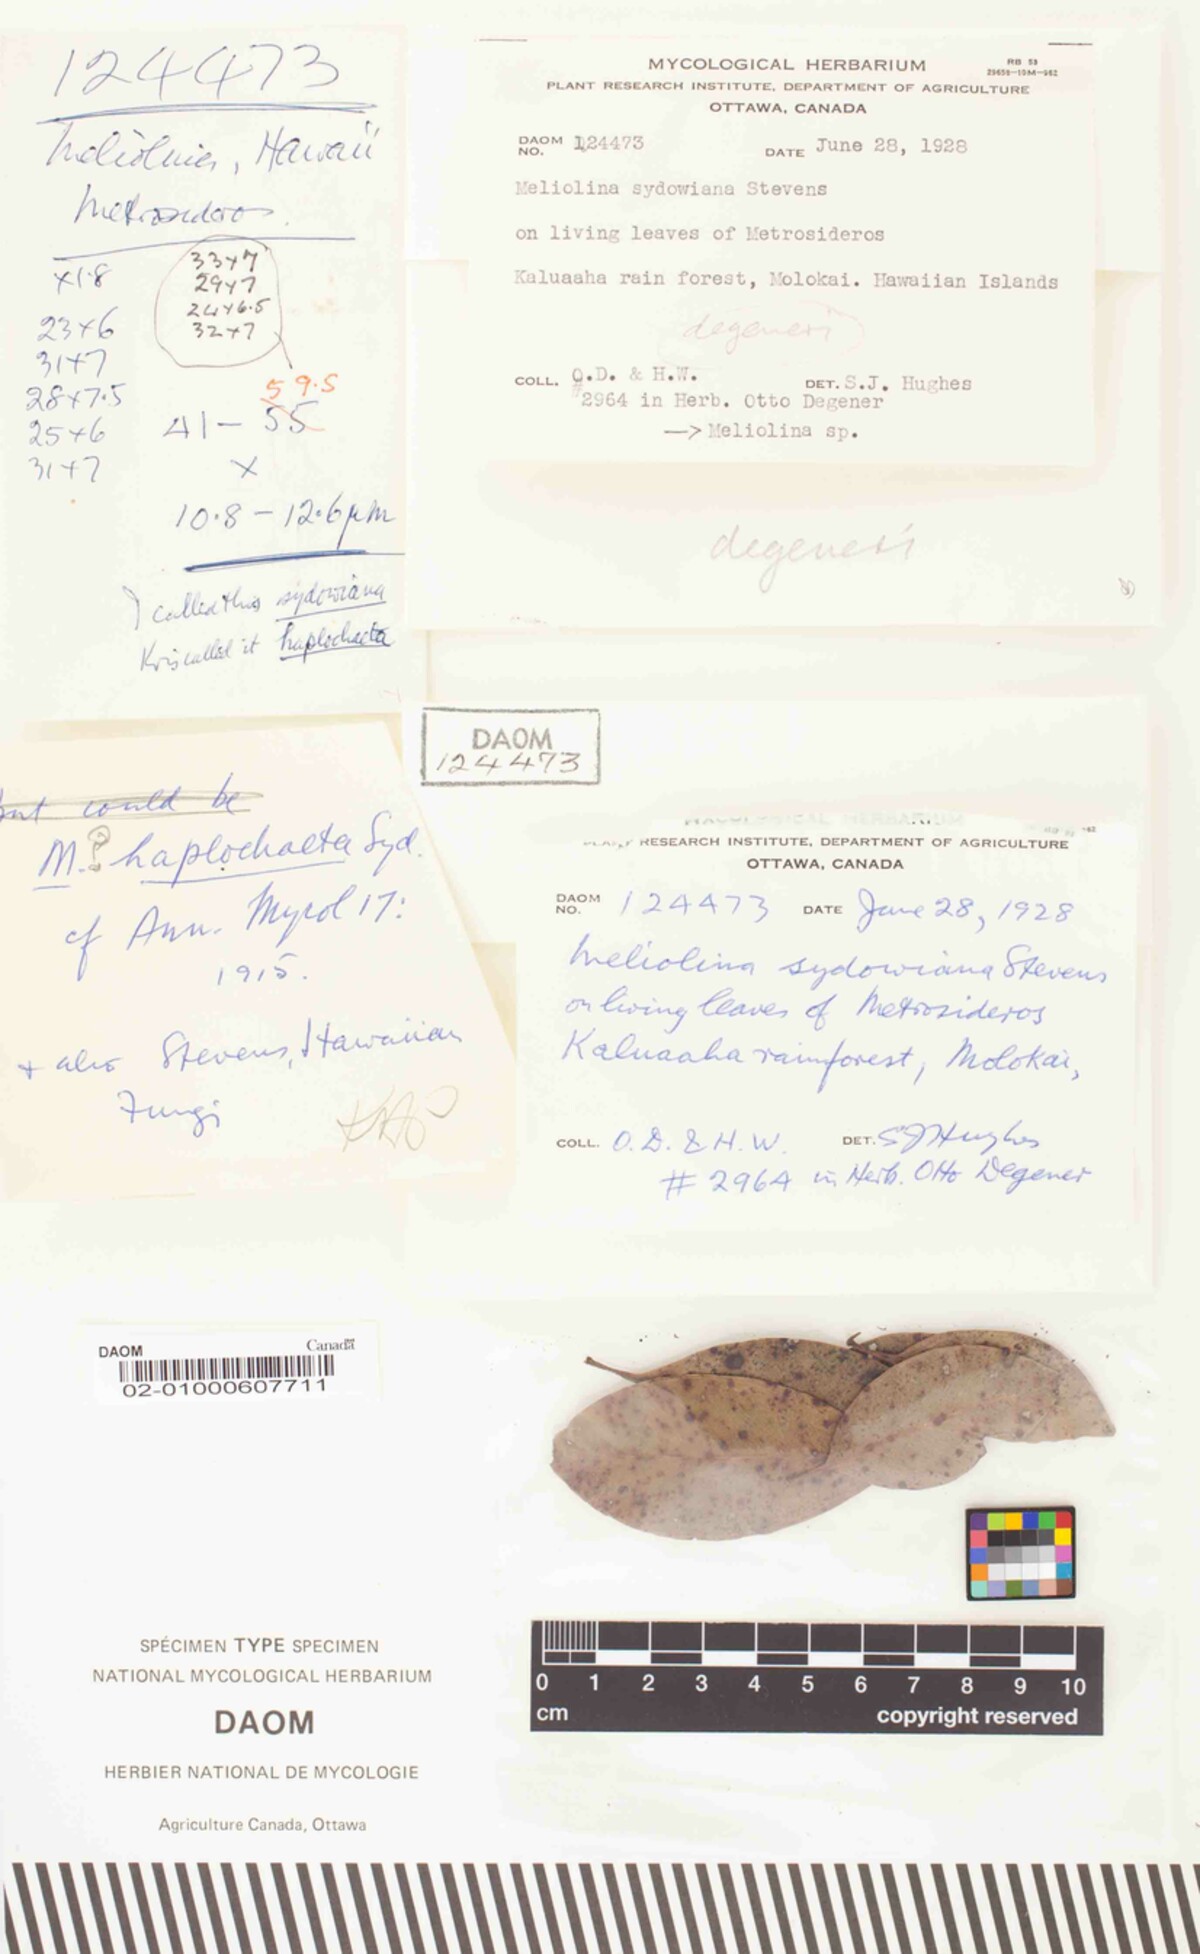 124473
Meliolina, Hawaii
Metrosideros.
x1.8
33x7
29x7
24x6.5
32x7
23x6
31x7
28x7.5
25x6
31x7
59.5
41 - 55
x
10.8 - 12.6 µm
I called this sydowiana
Kris called it haplochaeta
MYCOLOGICAL HERBARIUM
RB 53
PLANT RESEARCH INSTITUTE, DEPARTMENT OF AGRICULTURE
OTTAWA, CANADA
DAOM NO. 124473 DATE June 28, 1928
Meliolina sydowiana Stevens
on living leaves of Metrosideros
Kaluaaha rain forest, Molokai. Hawaiian Islands
degeneri
COLL. O.D. & H.W. DET. S.J. Hughes
#2964 in Herb. Otto Degener
—> Meliolina sp.
degeneri
but could be
M. ? haplochaeta Syd.
cf Ann. Mycol 17:
1915.
+ also Stevens, Hawaiian
Fungi
DAOM
124473
MYCOLOGICAL HERBARIUM
PLANT RESEARCH INSTITUTE, DEPARTMENT OF AGRICULTURE
OTTAWA, CANADA
DAOM NO. 124473 DATE June 28, 1928
Meliolina sydowiana Stevens
on living leaves of Metrosideros
Kaluaaha rainforest, Molokai,
COLL. O.D. & H.W. DET. SJ Hughes
# 2964 in Herb. Otto Degener
DAOM Canada
02-01000607711
SPÉCIMEN TYPE SPECIMEN
NATIONAL MYCOLOGICAL HERBARIUM
DAOM
HERBIER NATIONAL DE MYCOLOGIE
Agriculture Canada, Ottawa
0 1 2 3 4 5 6 7 8 9 10
cm copyright reserved